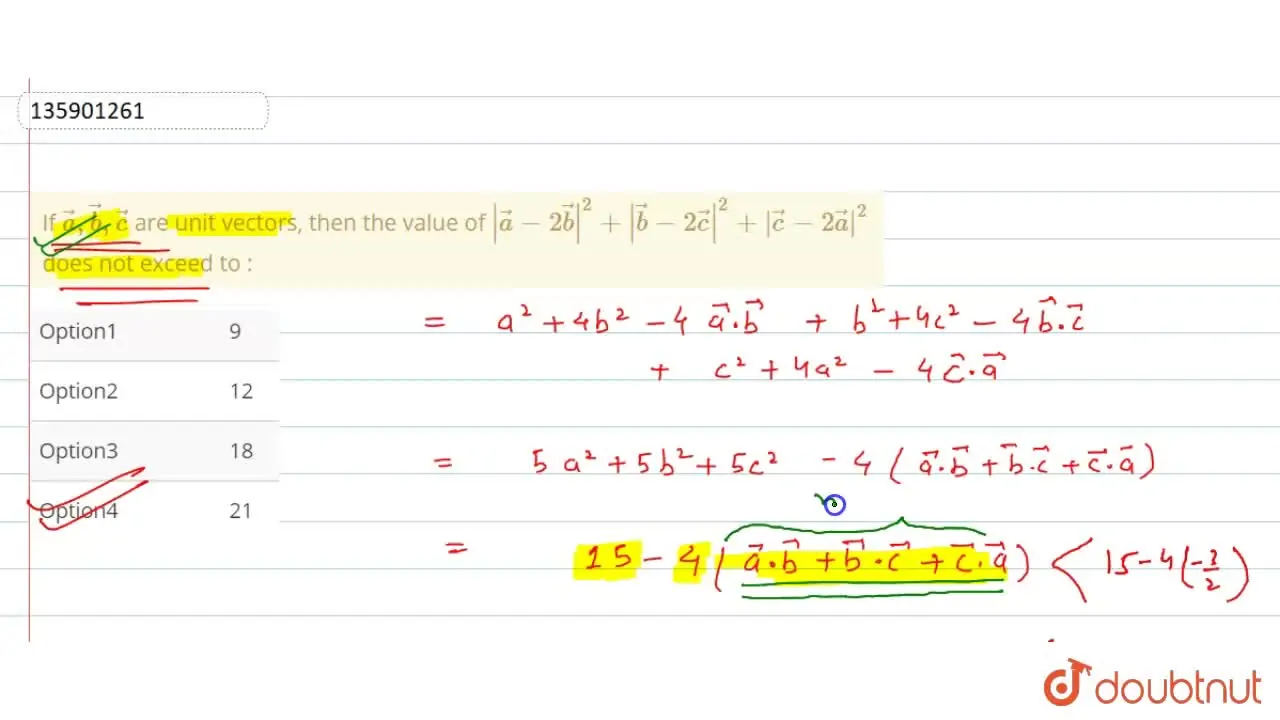 135901261
If $\vec{a}, \vec{b}, \vec{c}$ are unit vectors, then the value of $|\vec{a} - 2\vec{b}|^2 + |\vec{b} - 2\vec{c}|^2 + |\vec{c} - 2\vec{a}|^2$
does not exceed to :
Option1 9
Option2 12
Option3 18
Option4 21
= a² + 4b² - 4 $\vec{a}.\vec{b}$ + b² + 4c² - 4 $\vec{b}.\vec{c}$
+ c² + 4a² - 4 $\vec{c}.\vec{a}$
= 5a² + 5b² + 5c² - 4 ($\vec{a}.\vec{b} + \vec{b}.\vec{c} + \vec{c}.\vec{a}$)
= 15 - 4 ($\vec{a}.\vec{b} + \vec{b}.\vec{c} + \vec{c}.\vec{a}$) < 15 - 4 (-3/2)
doubtnut